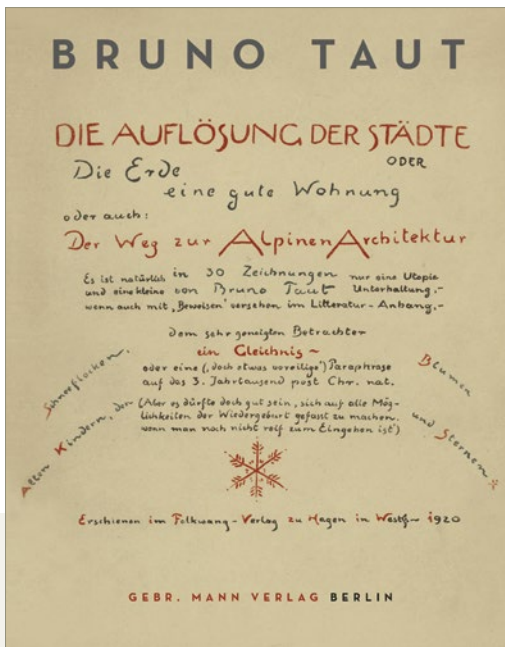 BRUNO TAUT
DIE AUFLÖSUNG DER STÄDTE
ODER
Die Erde
eine gute Wohnung
oder auch:
Der Weg zur Alpinen Architektur
Es ist natürlich in 30 Zeichnungen nur eine Utopie
und eine kleine von Bruno Taut Unterhaltung,-
wenn auch mit „Beweisen" versehen im Litteratur-Anhang,-
dem sehr geneigten Betrachter
ein Gleichnis ~
oder eine („doch etwas voreilige") Paraphrase
auf das 3. Jahrtausend post Chr. nat.
(Aber es dürfte doch gut sein, sich auf alle Mög-
lichkeiten der Wiedergeburt gefasst zu machen,
wenn man noch nicht reif zum Eingehen ist')
Allen Kindern, den Schneeflocken,
Blumen und Sternen
Erschienen im Folkwang-Verlag zu Hagen in Westf. ~ 1920
GEBR. MANN VERLAG BERLIN